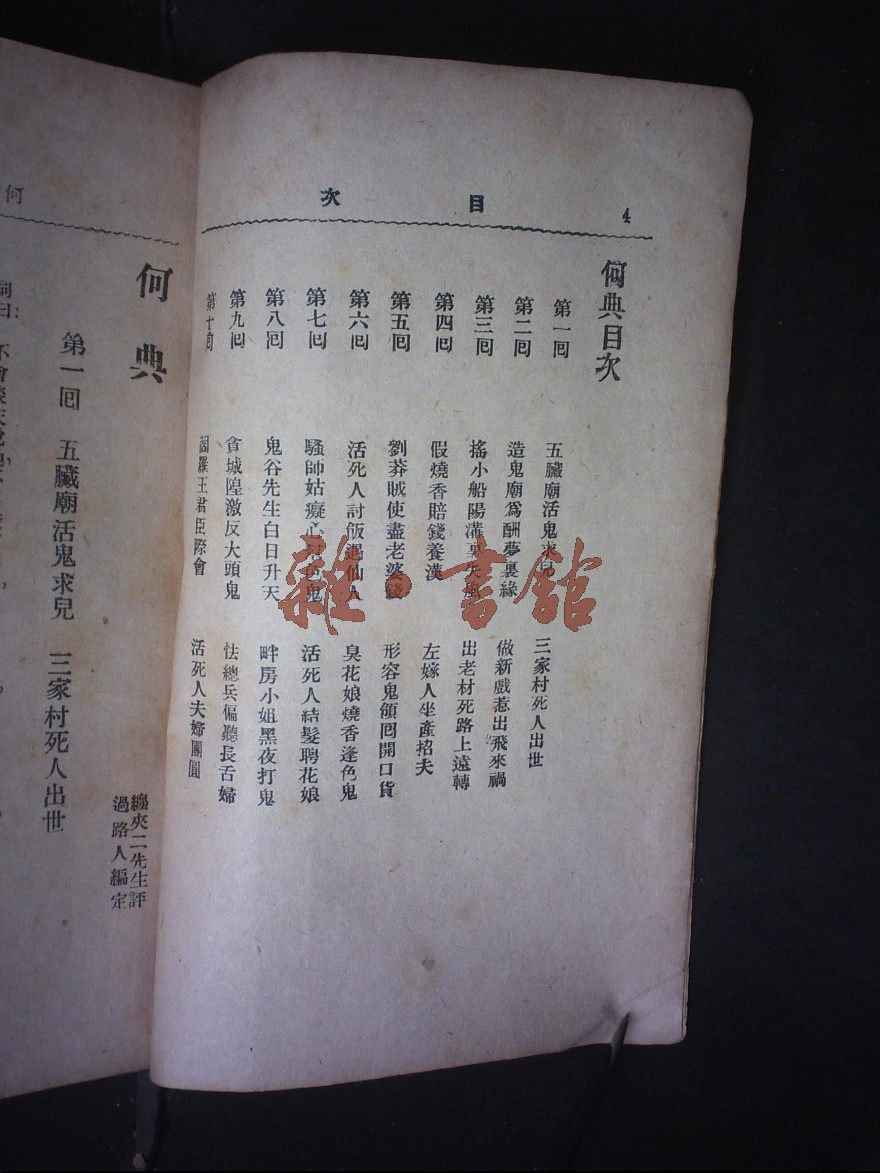 目次
4
何典目次
第一回 五臟廟活鬼求兒 三家村死人出世
第二回 造鬼廟爲酬夢裏緣 做新戲惹出飛來禍
第三回 搖小船陽溝裏失風 出老材死路上遠轉
第四回 假燒香賠錢養漢 左嫁人坐產招夫
第五回 劉莽賊使盡老婆錢 形容鬼領回開口貨
第六回 活死人討飯遇仙人 臭花娘燒香逢色鬼
第七回 騷師姑癡心幫色鬼 活死人結髮聘花娘
第八回 鬼谷先生白日升天 畔房小姐黑夜打鬼
第九回 貪城隍激反大頭鬼 怯總兵偏聽長舌婦
第十回 閻羅王君臣際會 活死人夫婦團圓
雜·書館
何
何典
纏夾二先生評
過路人編定
第一回 五臟廟活鬼求兒 三家村死人出世
詞曰：